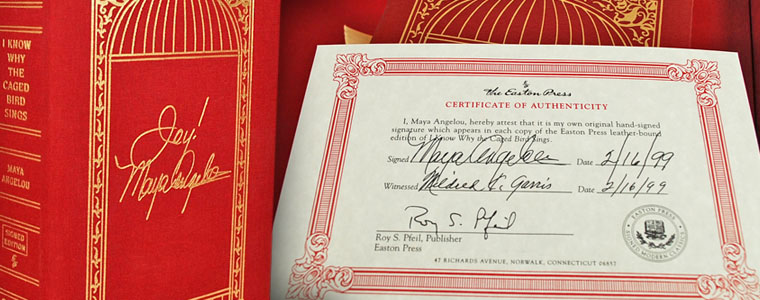 I KNOW
WHY
THE
CAGED
BIRD
SINGS
MAYA
ANGELOU
SIGNED
EDITION
Joy!
Maya Angelou
The Easton Press
CERTIFICATE OF AUTHENTICITY
I, Maya Angelou, hereby attest that it is my own original hand-signed
signature which appears in each copy of the Easton Press leather-bound
edition of I Know Why the Caged Bird Sings.
Signed Maya Angelou Date 2/16/99
Witnessed Mildred C. Garris Date 2/16/99
Roy S. Pfeil
Roy S. Pfeil, Publisher
Easton Press
EASTON PRESS
SIGNED MODERN CLASSIC
47 RICHARDS AVENUE, NORWALK, CONNECTICUT 06857